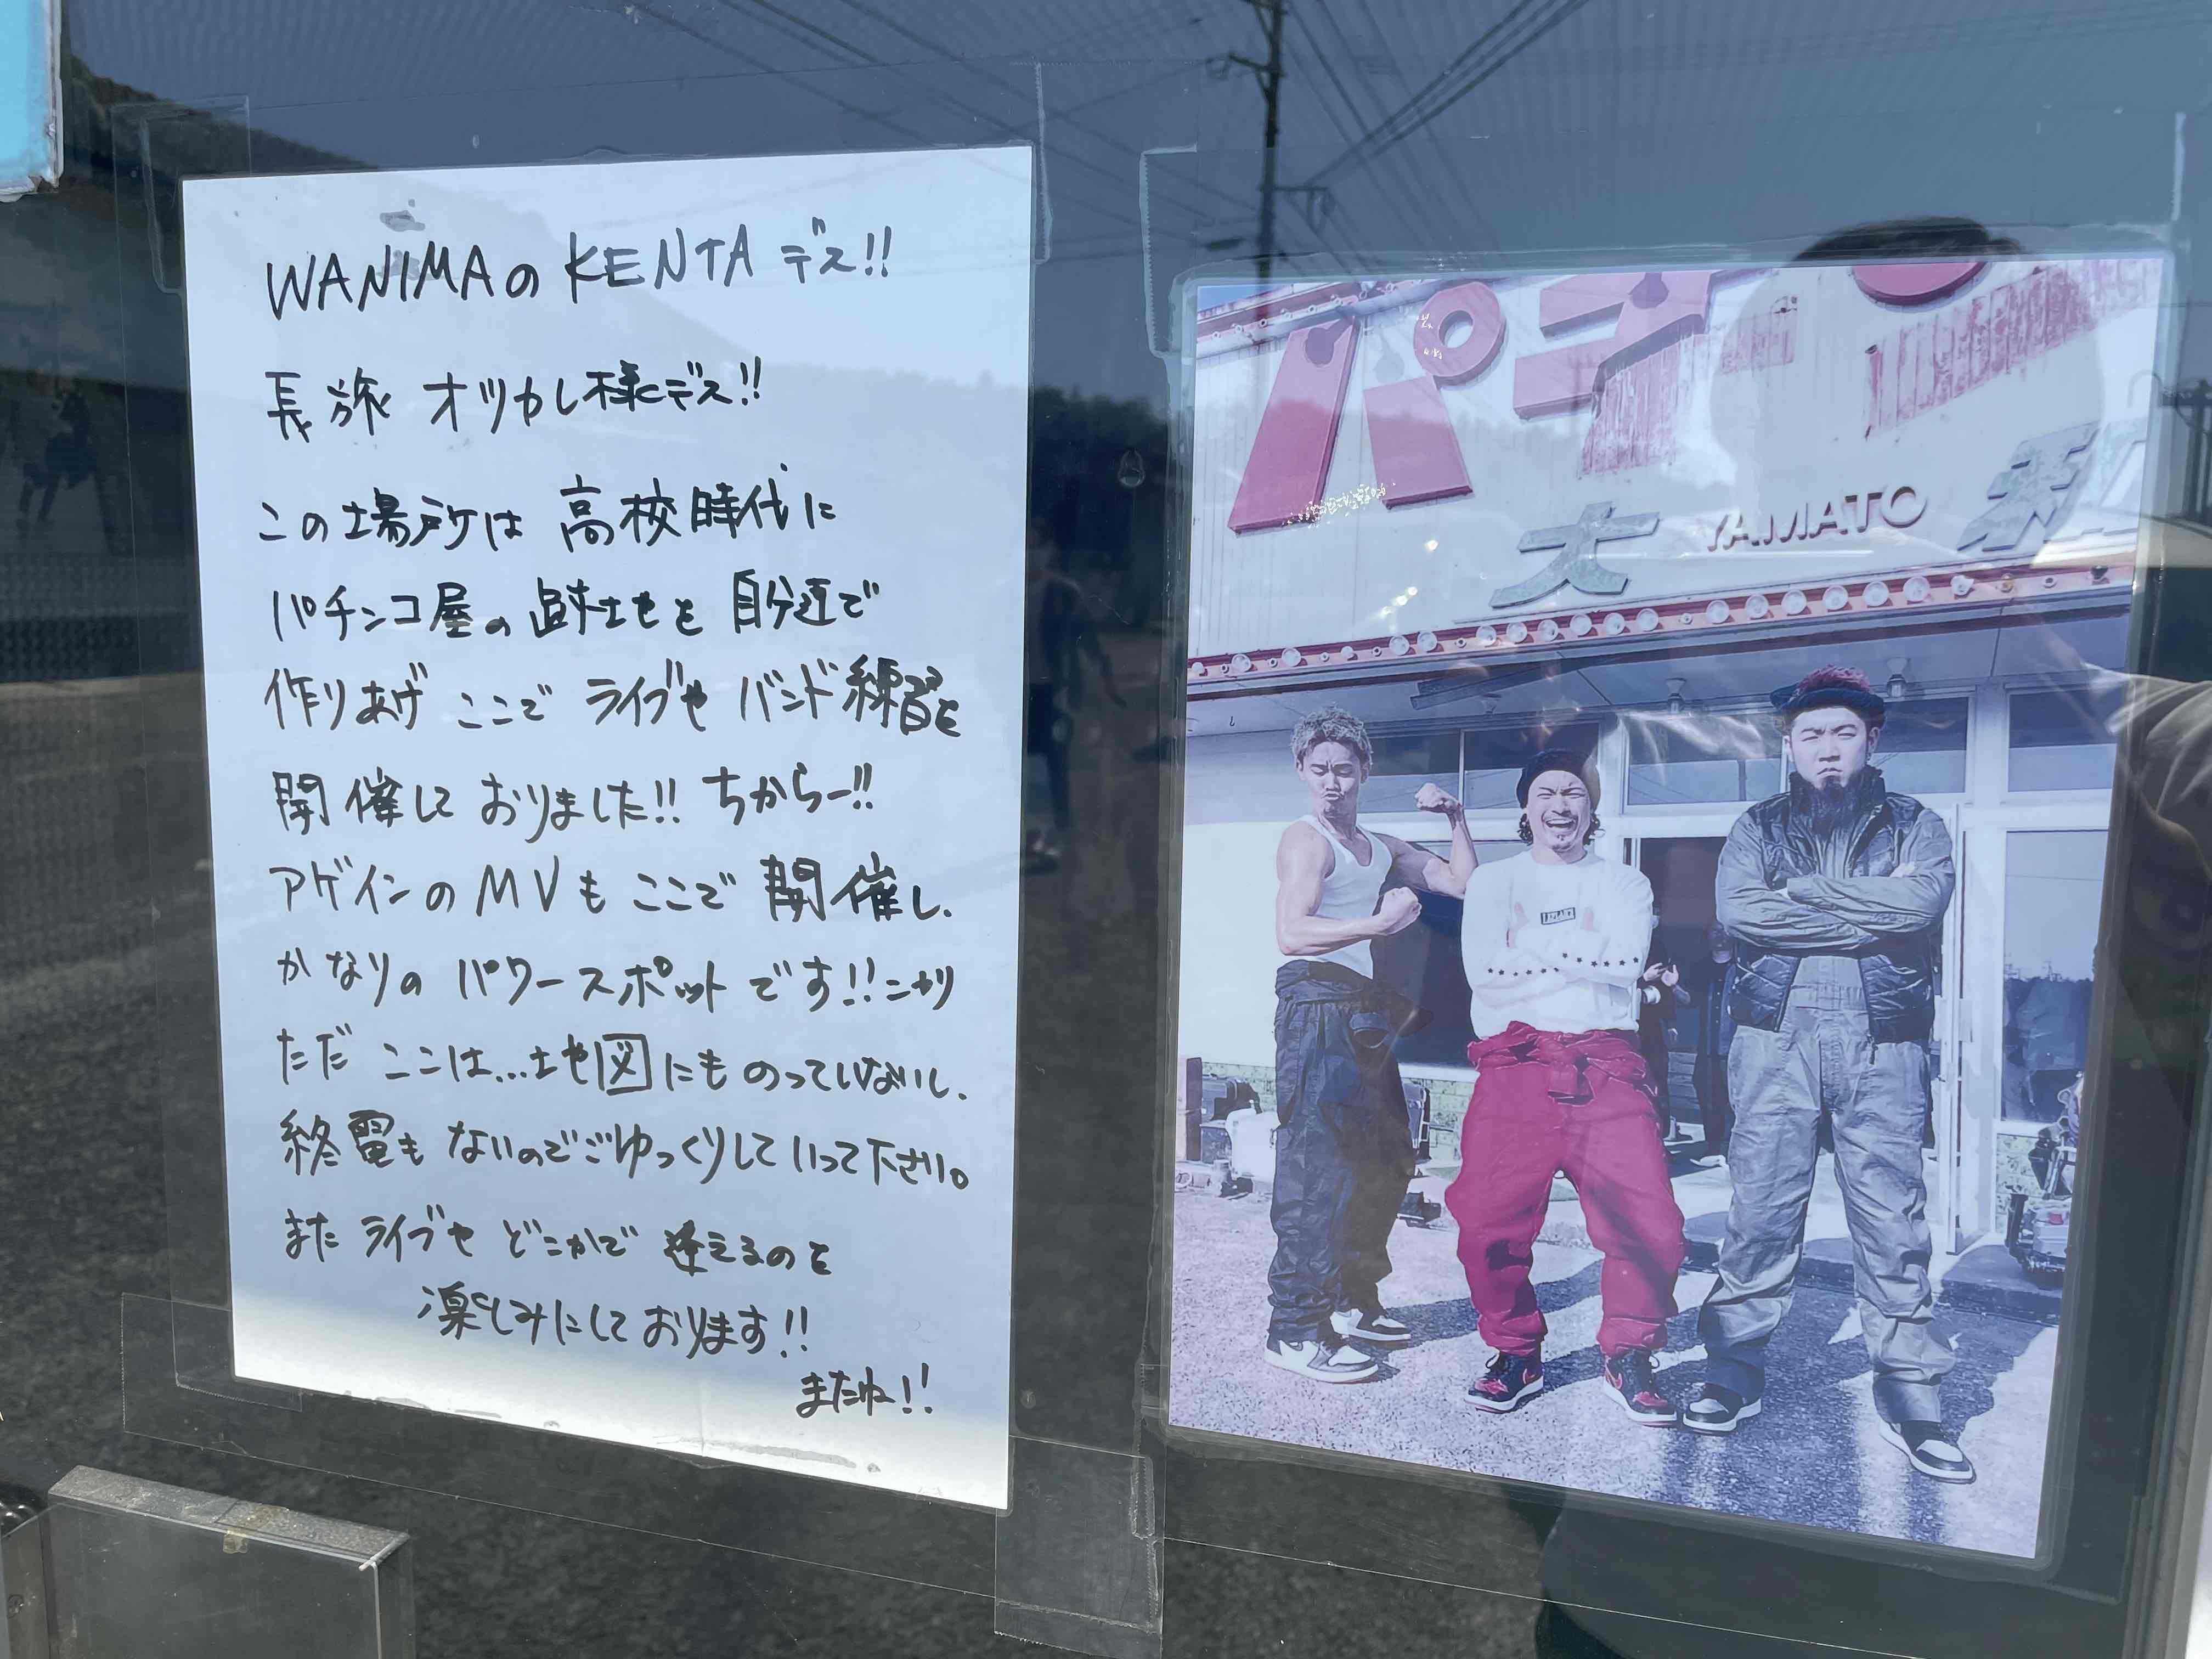 WANIMAの KENTA デス!!
長旅 オツカレ様デス!!
この場所は 高校時代に
パチンコ屋の 跡地を 自分達で
作りあげ ここで ライブや バンド練習を
開催して おりました!! ちからー!!
アゲインの MVも ここで 開催し、
かなりの パワースポット です!!ニヤリ
ただ ここは...地図にも のっていないし、
終電も ないのでごゆっくりしていって下さい。
また ライブや どこかで 逢えるのを
楽しみにして おります!!
またねー!!
パチン
大 YAMATO 和